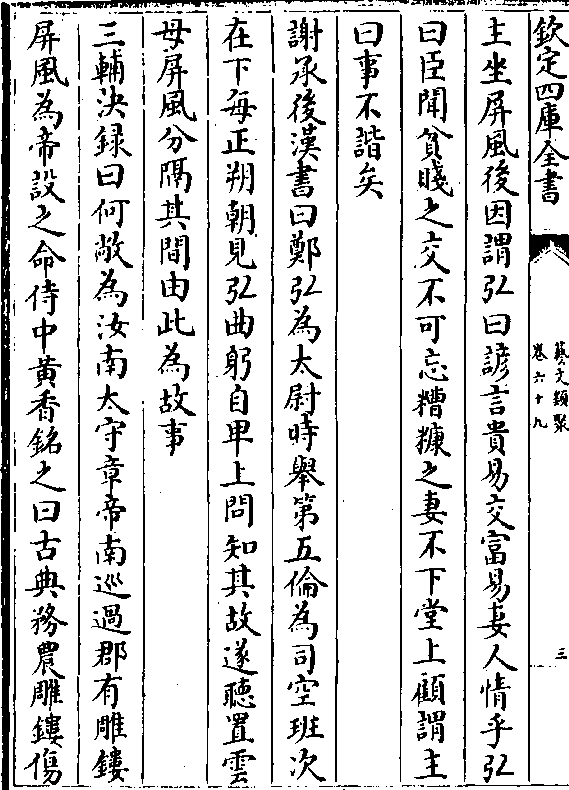 欽定四庫全書
藝文類聚
卷六十九
三
主坐屏風後因謂弘曰諺言貴易交富易妻人情乎弘
曰臣聞貧賤之交不可忘糟糠之妻不下堂上顧謂主
曰事不諧矣
謝承後漢書曰鄭弘為太尉時舉第五倫為司空班次
在下每正朔朝見弘曲躬自卑上問知其故遂聽置雲
母屏風分隔其間由此為故事
三輔決録曰何敞為汝南太守章帝南巡過郡有雕鏤
屏風為帝設之命侍中黄香銘之曰古典務農雕鏤傷